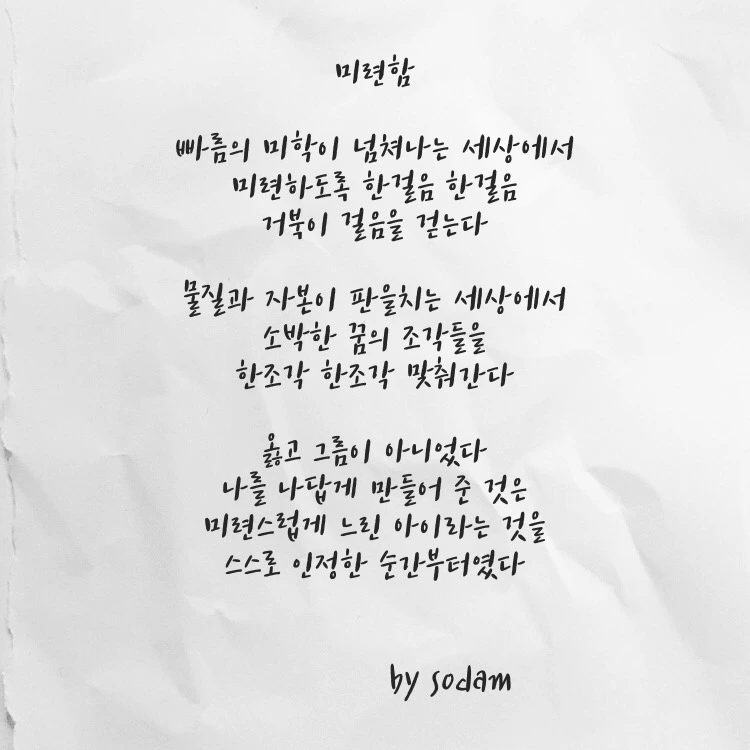 미련함
빠름의 미학이 넘쳐나는 세상에서
미련하도록 한걸음 한걸음
거북이 걸음을 걷는다
물질과 자본이 판을치는 세상에서
소박한 꿈의 조각들을
한조각 한조각 맞춰간다
옳고 그름이 아니었다
나를 나답게 만들어 준 것은
미련스럽게 느린 아이라는 것을
스스로 인정한 순간부터였다
by sodam